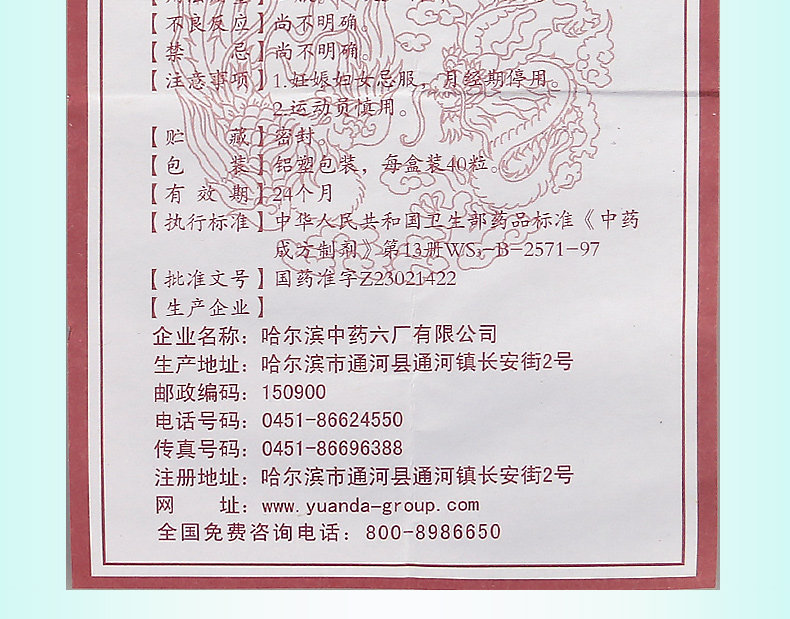 【不良反应】尚不明确。
【禁 忌】尚不明确。
【注意事项】1.妊娠妇女忌服，月经期停用。
2.运动员慎用。
【贮 藏】密封
【包 装】铝塑包装，每盒装40粒。
【有 效 期】24个月
【执行标准】中华人民共和国卫生部药品标准《中药
成方制剂》第13册WS₃-B-2571-97
【批准文号】国药准字Z23021422
【生产企业】
企业名称：哈尔滨中药六厂有限公司
生产地址：哈尔滨市通河县通河镇长安街2号
邮政编码：150900
电话号码：0451-86624550
传真号码：0451-86696388
注册地址：哈尔滨市通河县通河镇长安街2号
网 址：www.yuanda-group.com
全国免费咨询电话：800-8986650